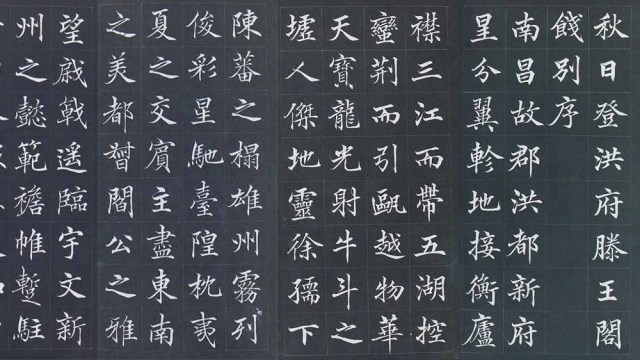 秋日登洪府滕王閣
餞別序
南昌故郡洪都新府
星分翼軫地接衡廬
襟三江而帶五湖控
蠻荆而引甌越物華
天寶龍光射牛斗之
墟人傑地靈徐孺下
陳蕃之榻雄州霧列
俊彩星馳臺隍枕夷
夏之交賓主盡東南
之美都督閻公之雅
望戟遥臨宇文新
州之懿範襜帷蹔駐